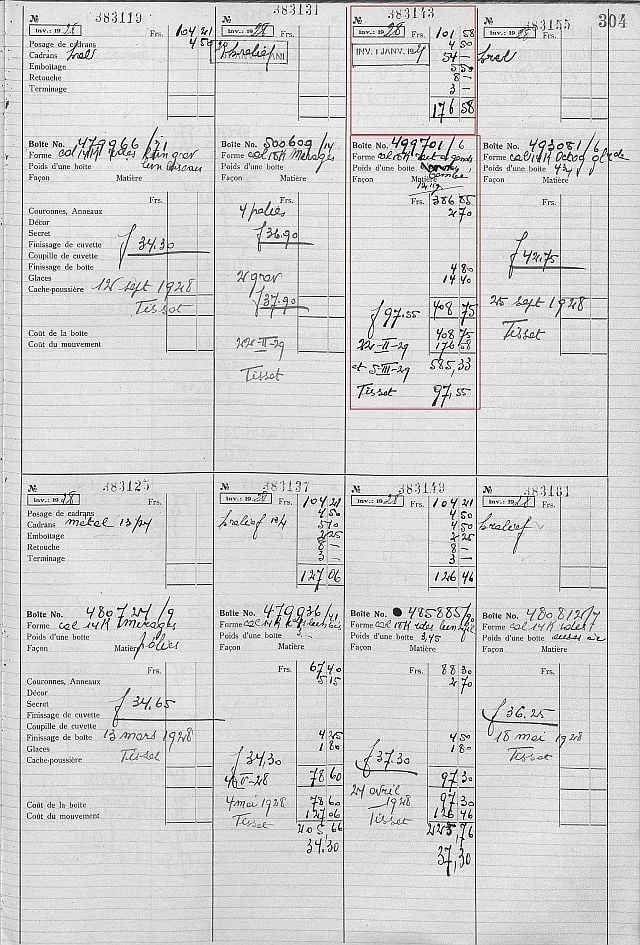 304
№ 383119
Inv.: 1928 Frs. 104 21
Posage de cadrans 4 50
Cadrans
Emboitage
Retouche
Terminage
Boîte No. 479966/21
Forme col 14K
Poids d'une boîte
Façon Matière
Frs.
Couronnes, Anneaux
Décor
Secret
Finissage de cuvette f 34.30
Coupille de cuvette
Finissage de boîte
Glaces
Cache-poussière 12 sept 1928
Tissot
Coût de la boîte
Coût du mouvement
№ 383131
Inv.: 1928 Frs.
brelief
Boîte No. 500609/14
Forme col 18K Mirages
Poids d'une boîte
Façon Matière
Frs.
4 polies
f 36.90
2 grav
f 37.90
22-II-29
Tissot
№ 383143
Inv.: 1928 Frs. 101 58
INV. 1 JANV. 1929 4 50
54 —
5 50
8 —
3 —
176 58
Boîte No. 499701/6
Forme col 18K
Poids d'une boîte
Façon Matière
Frs. 386 85
2 70
4 80
14 40
f 97.55 408 75
408 75
22-II-29 176 58
et 5-III-29 585,33
Tissot 97,55
№ 383155
Inv.: 1928 Frs.
brel
Boîte No. 493081/6
Forme col 14K Octog
Poids d'une boîte
Façon Matière
Frs.
f 42.75
25 sept 1928
Tissot
№ 383125
Inv.: 1928 Frs.
Posage de cadrans
Cadrans métal 13
Emboitage
Retouche
Terminage
Boîte No. 480727/9
Forme col 14K Mirages
Poids d'une boîte
Façon Matière polies
Frs.
Couronnes, Anneaux
Décor
Secret f 34.65
Finissage de cuvette
Coupille de cuvette
Finissage de boîte 13 mars 1928
Glaces Tissot
Cache-poussière
Coût de la boîte
Coût du mouvement
№ 383137
Inv.: 1928 Frs. 104 21
4 50
brelief 5 10
2 25
8 —
3 —
127 06
Boîte No. 479936/41
Forme col 14K
Poids d'une boîte
Façon Matière
Frs. 67 40
5 15
4 25
1 80
f 34.30 78 60
4-V-28
4 mai 1928 78 60
Tissot 127 06
205,66
34.30
№ 383149
Inv.: 1928 Frs. 104 21
4 50
4 50
2 25
8 —
3 —
126 46
Boîte No. 485885/90
Forme col 18K
Poids d'une boîte 3,45
Façon Matière
Frs. 88 30
2 70
4 50
1 80
f 37.30 97 30
27 avril
1928 97 30
Tissot 126 46
223,76
37,30
№ 383161
Inv.: 1928 Frs.
brelief
Boîte No. 480812/7
Forme col 14K
Poids d'une boîte
Façon Matière
Frs.
f 36.25
18 mai 1928
Tissot